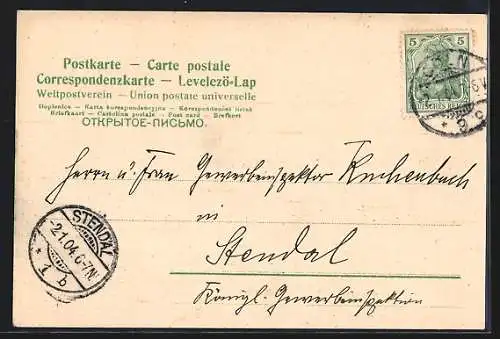 Postkarte — Carte postale
Correspondenzkarte — Levelező-Lap
Weltpostverein — Union postale universelle
Dopisnice — Karta korespondencyjna — Korespondenční lístek
Briefkaart — Cartolina postale — Post card — Brefkort
ОТКРЫТОЕ-ПИСЬМО.
5 5
DEUTSCHES REICH
Herrn u. Frau Gewerbeinspektor Kuchenbach
in
Stendal
Königl. Gewerbeinspektion
STENDAL
2.1.04.6-7N
* 1 b